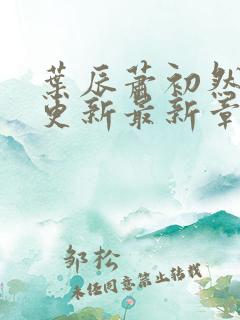 葉辰蕭初然
更新最新章
邹松
未经同意禁止转载